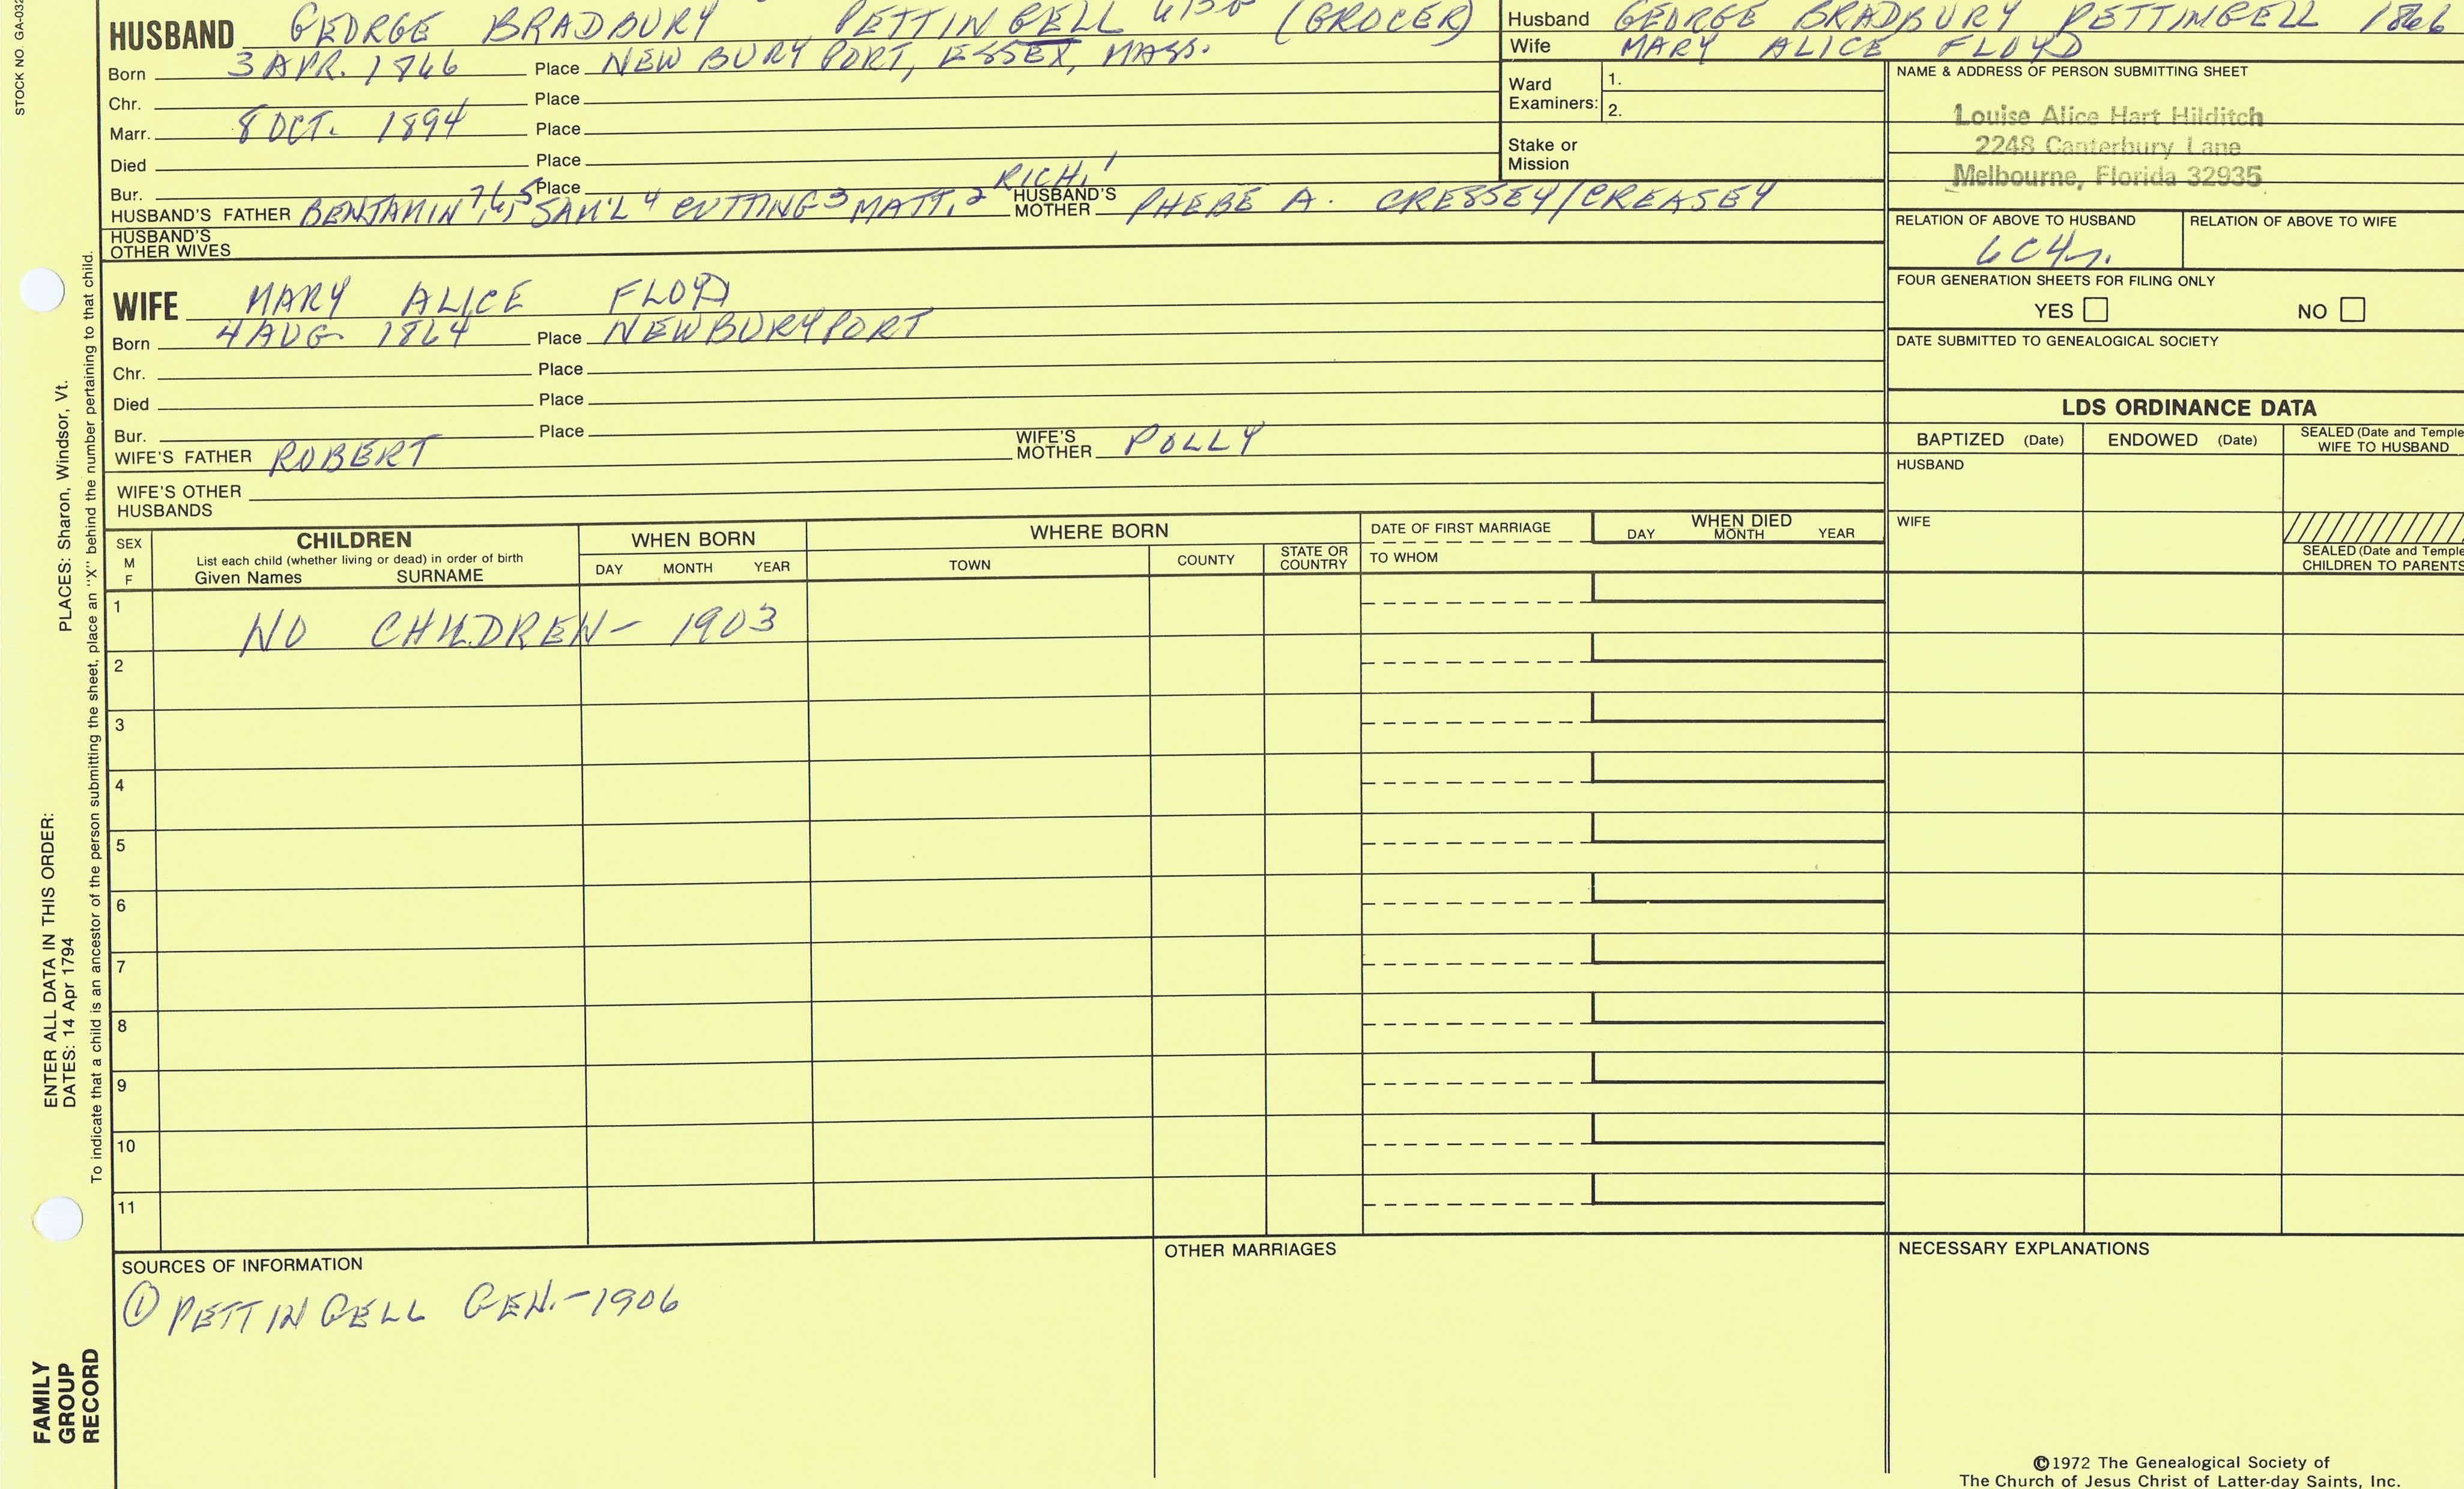 STOCK NO. GA-032
HUSBAND GEORGE BRADBURY PETTINGELL (GROCER)
Born 3 APR. 1866 Place NEWBURYPORT, ESSEX, MASS.
Chr. Place
Marr. 8 OCT. 1894 Place
Died Place
Bur. Place
HUSBAND'S FATHER BENJAMIN 7,6,5 SAM'L 4 CUTTING 3 MATT. 2 RICH. 1 HUSBAND'S MOTHER PHEBE A. CRESSEY/CREASEY
HUSBAND'S
OTHER WIVES
WIFE MARY ALICE FLOYD
Born 4 AUG. 1864 Place NEWBURYPORT
Chr. Place
Died Place
Bur. Place
WIFE'S FATHER ROBERT WIFE'S MOTHER POLLY
WIFE'S OTHER
HUSBANDS
Husband GEORGE BRADBURY PETTINGELL 1866
Wife MARY ALICE FLOYD
Ward
Examiners:
1.
2.
Stake or
Mission
NAME & ADDRESS OF PERSON SUBMITTING SHEET
Louise Alice Hart Hilditch
2248 Canterbury Lane
Melbourne, Florida 32935
RELATION OF ABOVE TO HUSBAND RELATION OF ABOVE TO WIFE
6C4r.
FOUR GENERATION SHEETS FOR FILING ONLY
YES NO
DATE SUBMITTED TO GENEALOGICAL SOCIETY
LDS ORDINANCE DATA
BAPTIZED (Date) ENDOWED (Date) SEALED (Date and Temple
WIFE TO HUSBAND
HUSBAND
WIFE
SEALED (Date and Temple
CHILDREN TO PARENTS
SEX
M
F
CHILDREN
List each child (whether living or dead) in order of birth
Given Names SURNAME
WHEN BORN
DAY MONTH YEAR
WHERE BORN
TOWN COUNTY STATE OR COUNTRY
DATE OF FIRST MARRIAGE
TO WHOM
WHEN DIED
DAY MONTH YEAR
1 NO CHILDREN - 1903
2
3
4
5
6
7
8
9
10
11
SOURCES OF INFORMATION
① PETTINGELL GEN. - 1906
OTHER MARRIAGES
NECESSARY EXPLANATIONS
©1972 The Genealogical Society of
The Church of Jesus Christ of Latter-day Saints, Inc.
PLACES: Sharon, Windsor, Vt.
ENTER ALL DATA IN THIS ORDER:
DATES: 14 Apr 1794
To indicate that a child is an ancestor of the person submitting the sheet, place an "X" behind the number pertaining to that child.
FAMILY
GROUP
RECORD